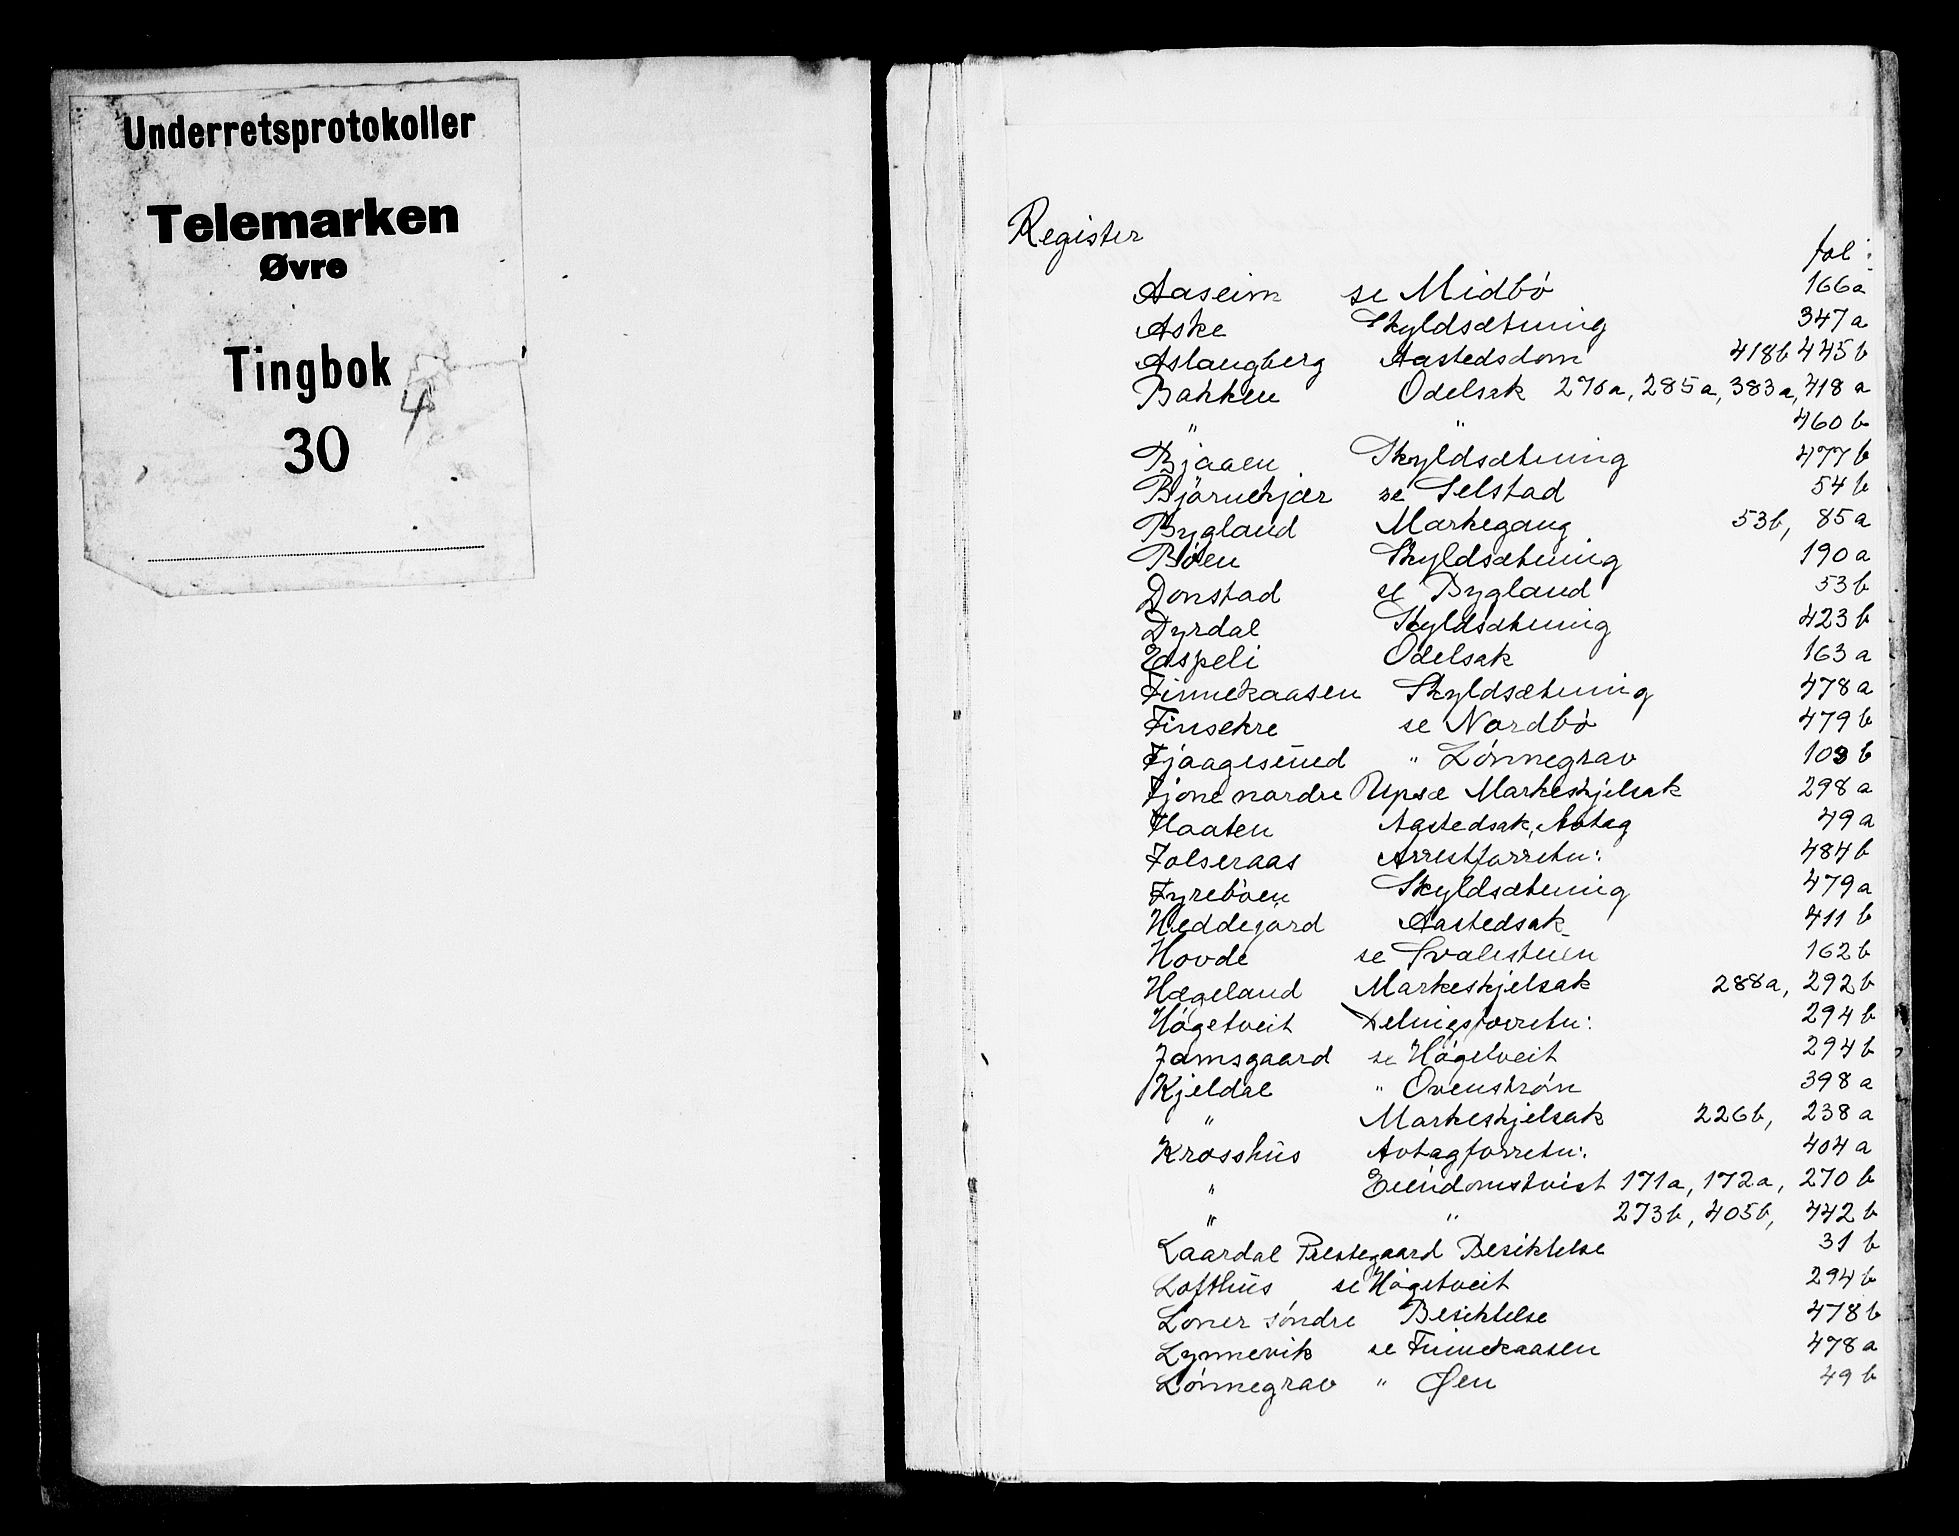 Underretsprotokoller
Telemarken
Øvre
Tingbok
4
30
Register
fol:
Aaseim se Midbö 166a
Aske Skyldsætning 347a
Aslaugberg Aastedsdom 418b 445b
Bakken Odelsak 276a, 285a, 383a, 418a
" " 460b
Bjaaen Skyldsætning 477b
Björnekjær se Selstad 54b
Bygland Markegang 53b, 85a
Böen Skyldsætning 190a
Donstad se Bygland 53b
Dyrdal Skyldsætning 423b
Edspeli Odelsak 163a
Finnekaasen Skyldsætning 478a
Finsekre se Nordbö 479b
Fjaagesund " Lönnegrav 103b
Fjone nordre Upsæ Markeskjelsak 298a
Flaaten Aastedsak, Avtag 49a
Folseraas Arrestforretn: 484b
Fyreböen Skyldsætning 479a
Heddejord Aastedsak 411b
Hovde se Svalestuen 162b
Hægeland Markeskjelsak 288a, 292b
Högetveit Delingsforretn: 294b
Jamsgaard se Högetveit 294b
Kjeldal " Ovenströn 398a
" Markeskjelsak 226b, 238a
Krosshus Avtagforretn: 404a
" Eiendomstvist 171a, 172a, 270b
" " 273b, 405b, 442b
Laardal Prestegaard Besiktelse 31b
Lofthus se Högetveit 294b
Loner söndre Besiktelse 478b
Lynnevik se Finnekaasen 478a
Lönnegrav " Øen 49b